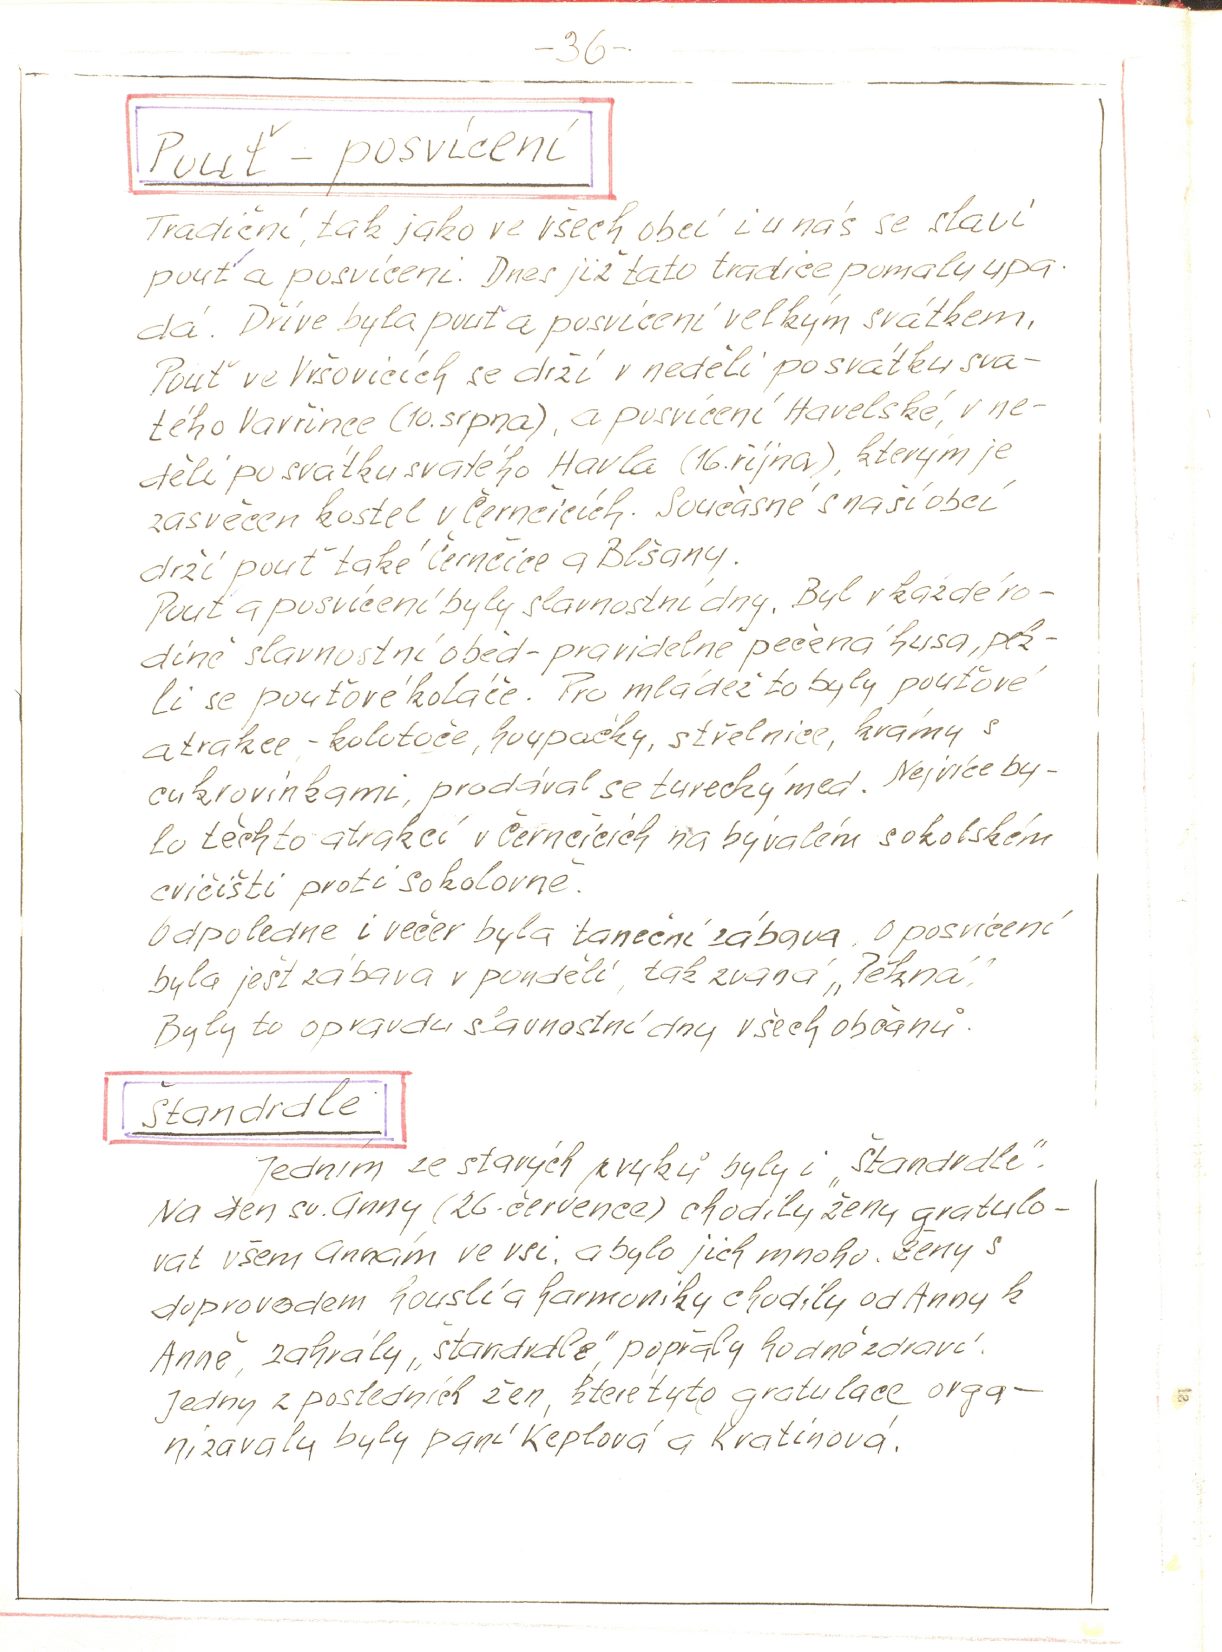 -36-
Pouť - posvícení
Tradiční, tak jako ve všech obcí i u nás se slaví
pouť a posvíceni. Dnes již tato tradice pomalu upa-
dá. Dříve byla pouť a posvícení velkým svátkem.
Pouť ve Vršovicích se drží v neděli po svátku sva-
tého Vavřince (10. srpna), a posvícení Havelské, v ne-
děli po svátku svatého Havla (16. října), kterým je
zasvěcen kostel v Černčicích. Současně s naší obcí
drží pouť také Černčice a Blšany.
Pouť a posvícení byly slavnostní dny. Byl v každé ro-
dině slavnostní oběd - pravidelně pečená husa, pek-
li se pouťové koláče. Pro mládež to byly pouťové
atrakce - kolotoče, houpačky, střelnice, krámy s
cukrovinkami, prodával se turecký med. Nejvíce by-
lo těchto atrakcí v Černčicích na bývalém sokolském
cvičišti proti sokolovně.
Odpoledne i večer byla taneční zábava. O posvícení
byla ješt zábava v pondělí, tak zvaná „Pěkná."
Byly to opravdu slavnostní dny všech občanů.
Štandrdle
Jedním ze starých zvyků byly i „Štandrdle".
Na den sv. Anny (26. července) chodily ženy gratulo-
vat všem Annám ve vsi, a bylo jich mnoho. Ženy s
doprovodem houslí a harmoniky chodily od Anny k
Anně, zahrály „štandrdle", popřály hodně zdraví.
Jedny z posledních žen, které tyto gratulace orga-
nizavaly byly paní Keplová a Kratinová.